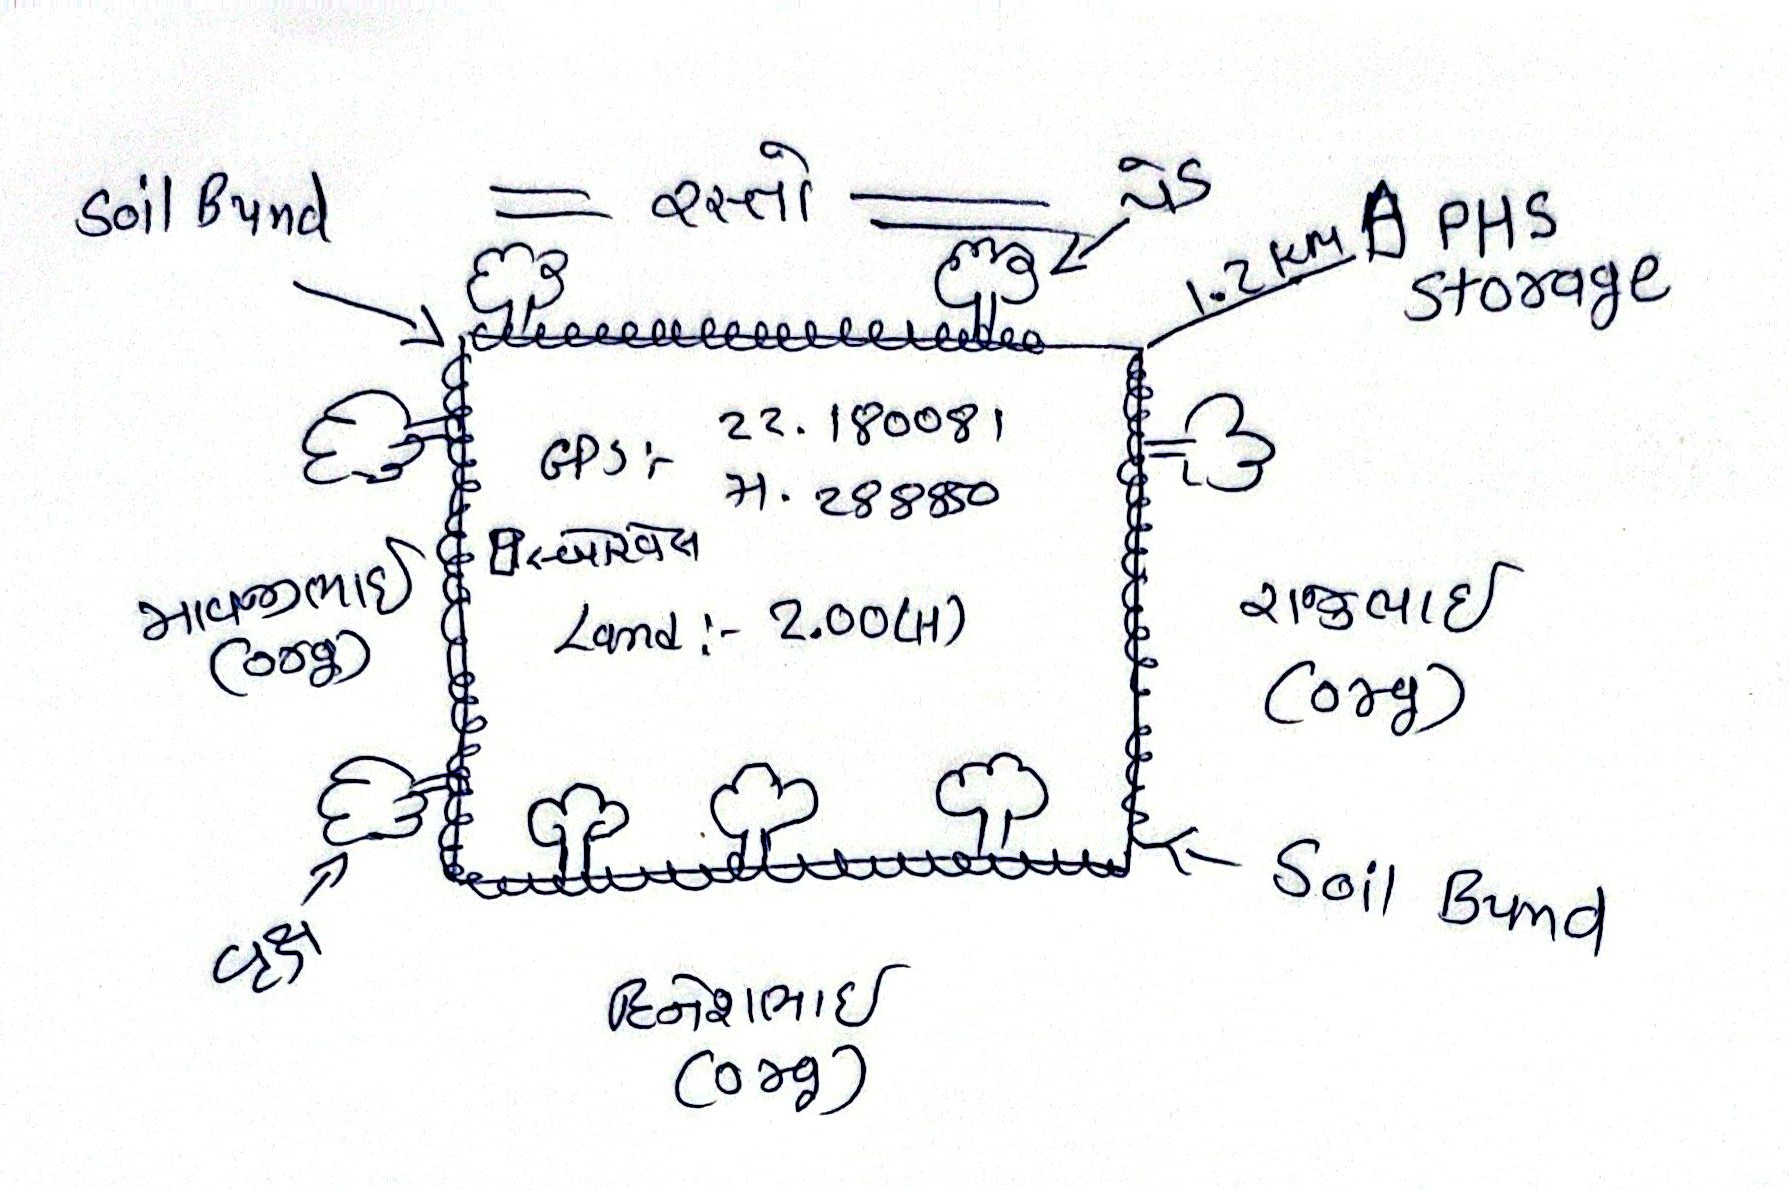 Soil Bund
રસ્તો
પેડ
1.2 KM
PHS
Storage
GPS :-
22.180081
71.288850
બોરવેલ
Land :- 2.00(H)
માવજીભાઈ
(org)
રાજુભાઈ
(org)
વૃક્ષ
Soil Bund
દિનેશભાઈ
(org)